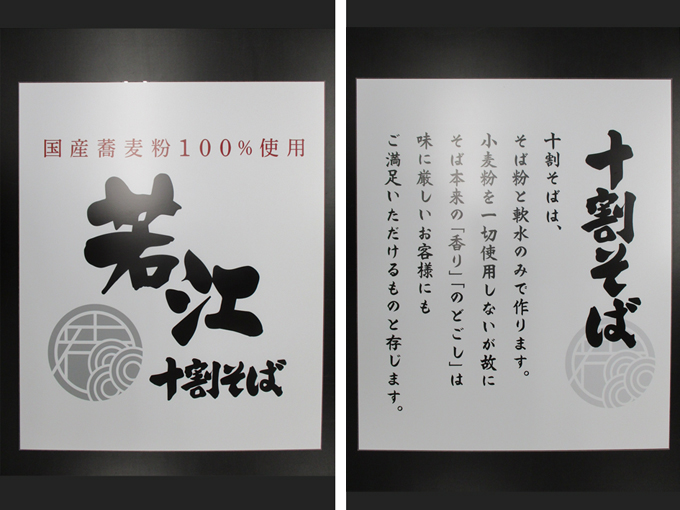 国産蕎麦粉100%使用
若江
十割そば
十割そば
十割そばは、
そば粉と軟水のみで作ります。
小麦粉を一切使用しないが故に
そば本来の「香り」「のどごし」は
味に厳しいお客様にも
ご満足いただけるものと存じます。